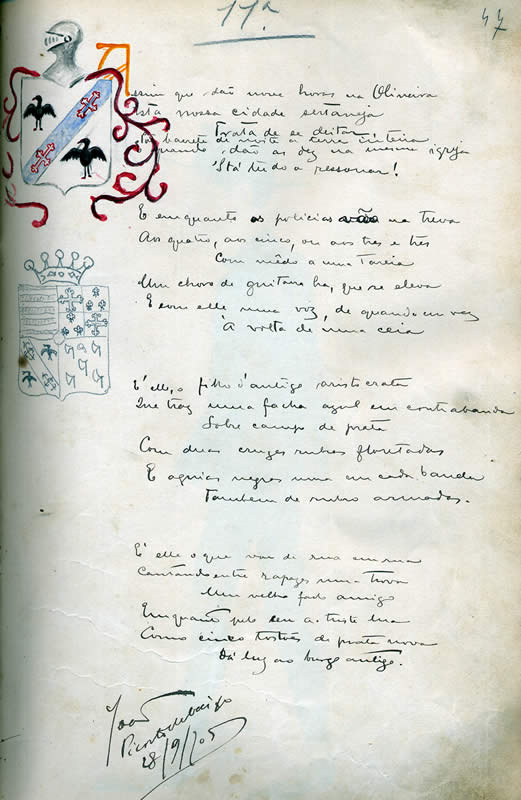 11ª
47
Assim que dão nove horas na Oliveira
Esta nossa cidade sertaneja
Trata de se deitar
Põe barrete de noite a terra inteira
E quando dão as dez na mesma igreja
'Stá tudo a ressonar!
E emquanto os policias vão na treva
Aos quatro, aos cinco, ou aos tres e tres
Com mêdo a uma Tareia
Um choro de guitarra ha, que se eleva
E com elle uma voz, de quando em vez
À volta de uma ceia
E' elle, o filho d'antigo aristocrata
Que traz uma facha azul em contrabanda
Sobre campo de prata
Com duas cruzes rubras floretadas
E aguias negras uma em cada banda
Tambem de rubro armadas.
E' elle o que vae de rua em rua
Cantando entre rapazes uma trova
Um velho fado amigo
Emquanto pelo ceu a triste lua
Como cinco tostões de prata nova
Dá luz ao burgo antigo.
João
28/9/905